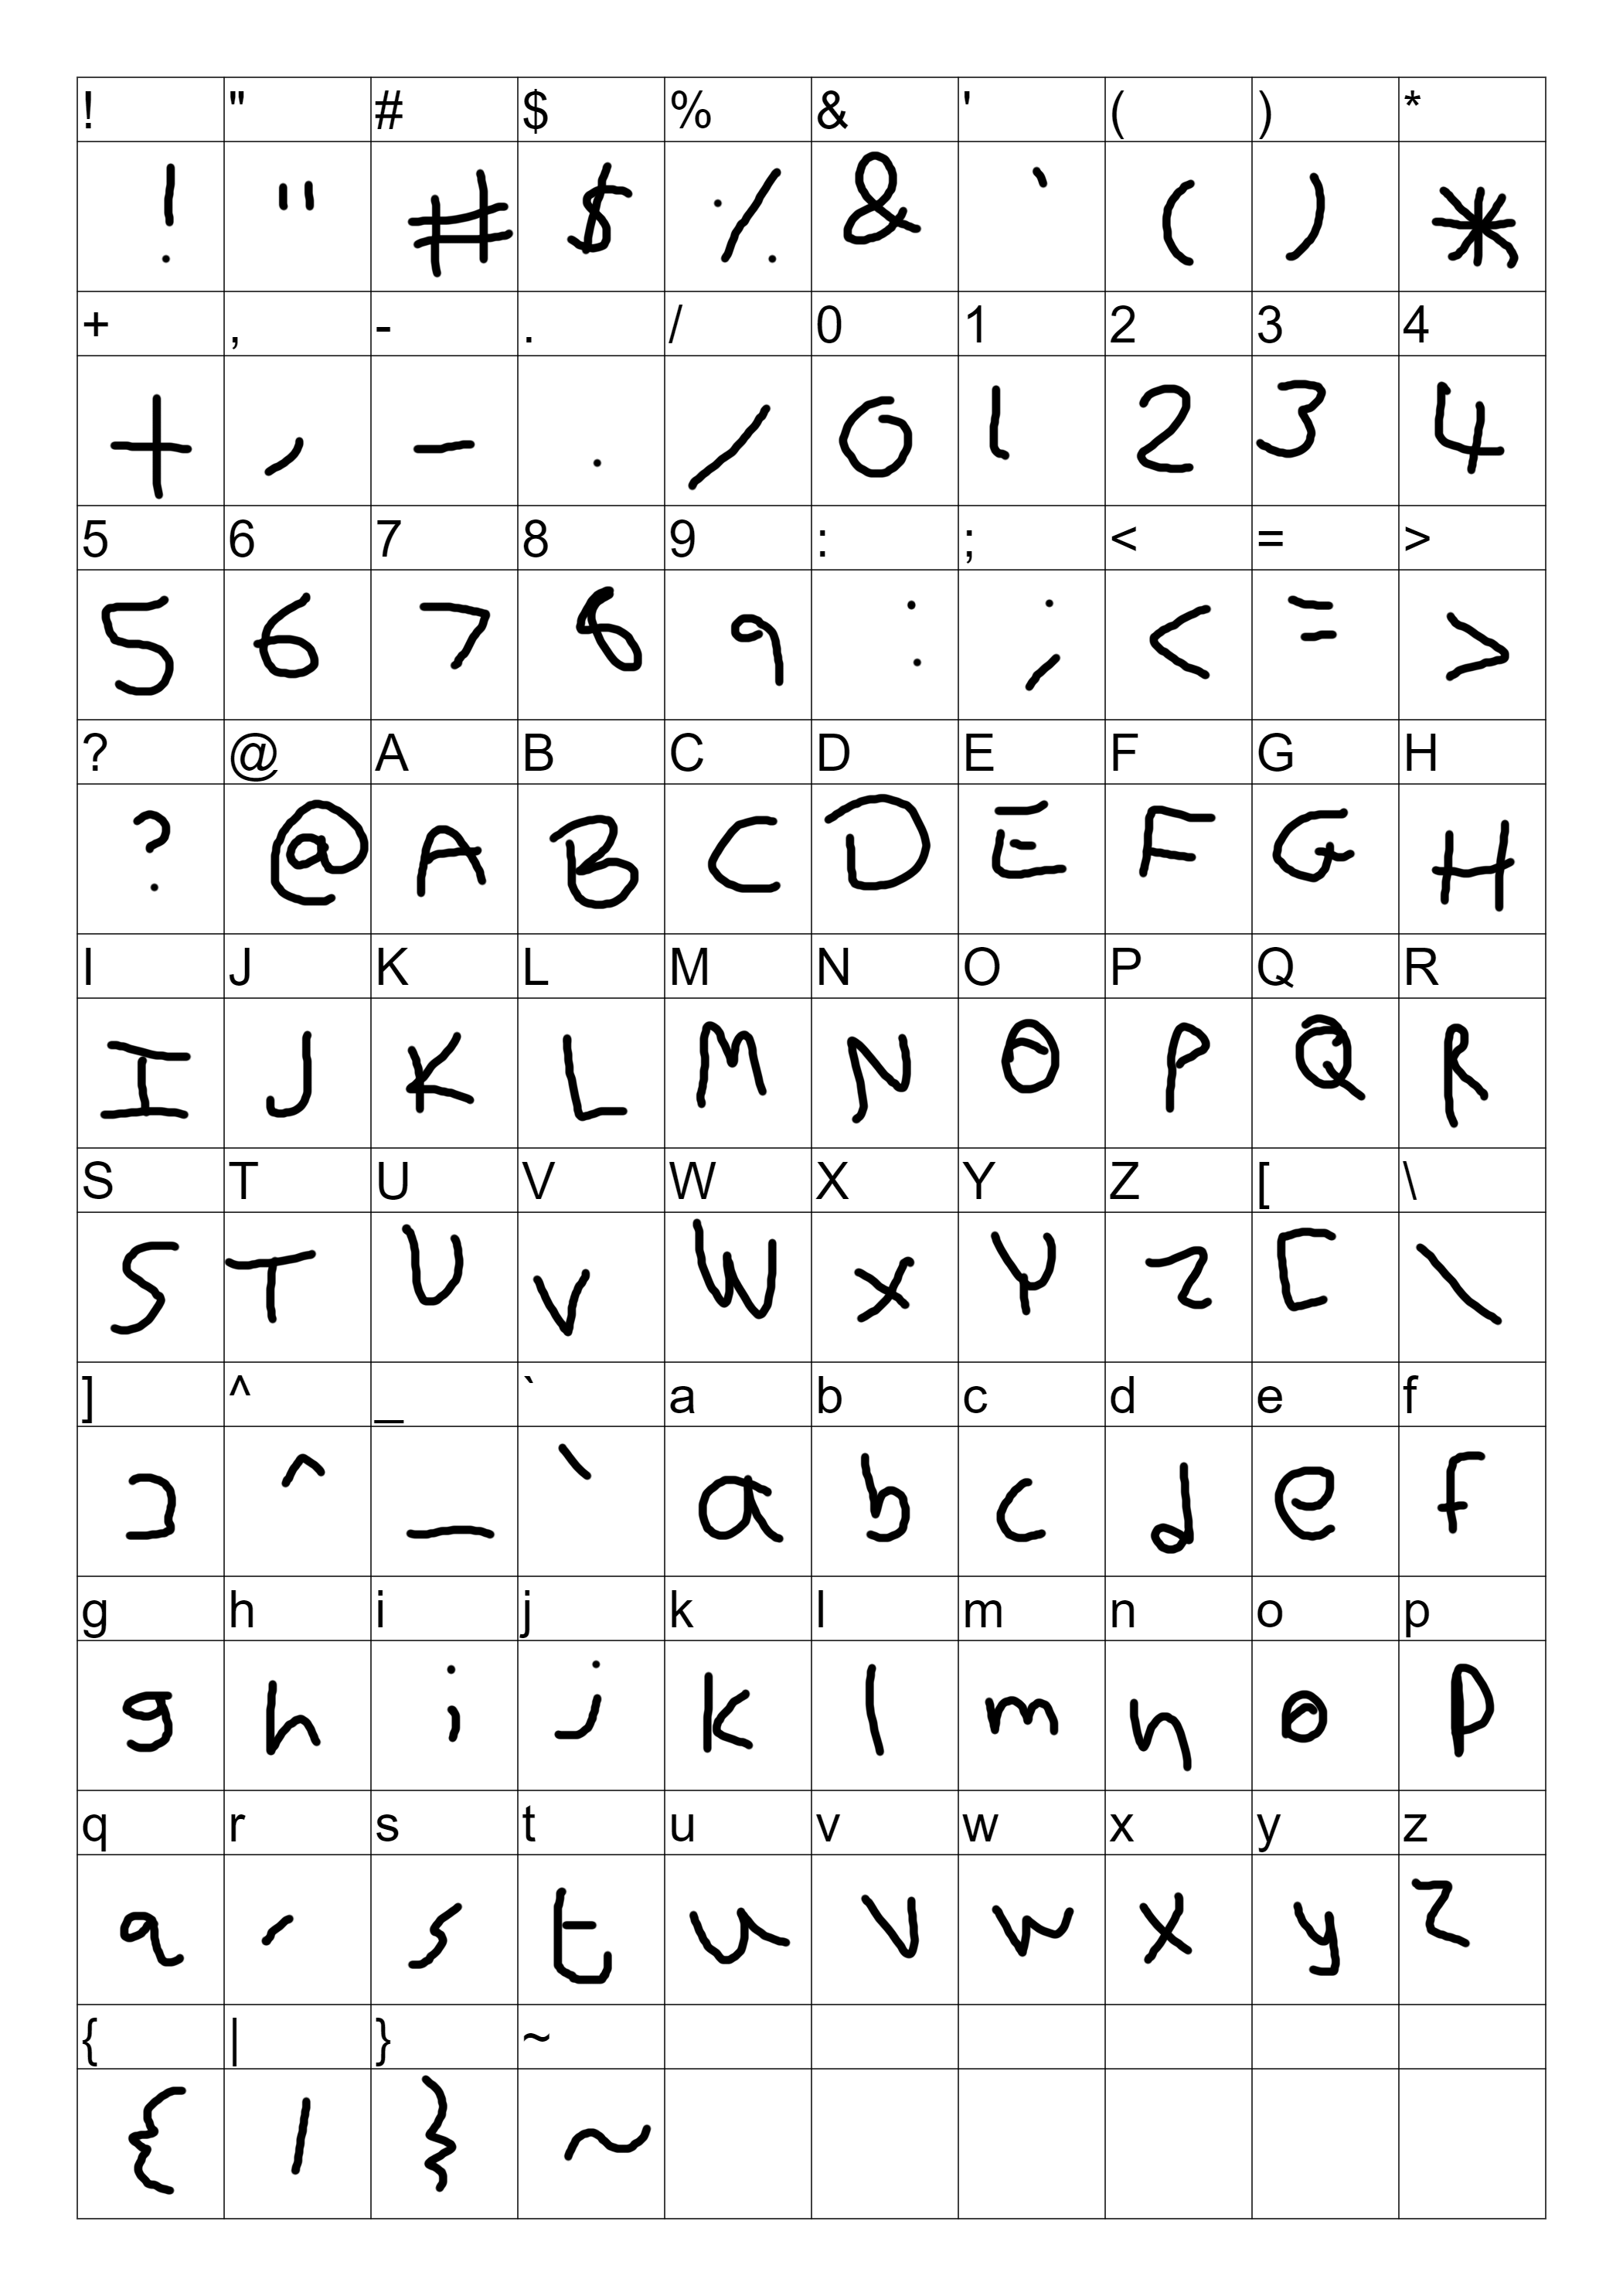 ! " # $ % & ' ( ) *
! " # $ % & ` ( ) *
+ , - . / 0 1 2 3 4
+ , - . / 0 1 2 3 4
5 6 7 8 9 : ; < = >
5 6 7 8 9 : ; < = >
? @ A B C D E F G H
? @ A B C D E F G H
I J K L M N O P Q R
I J K L M N O P Q R
S T U V W X Y Z [ \
S T U V W X Y Z [ \
] ^ _ ` a b c d e f
] ^ _ ` a b c d e f
g h i j k l m n o p
g h i j k l m n o p
q r s t u v w x y z
q r s t u v w x y z
{ | } ~
{ | } ~